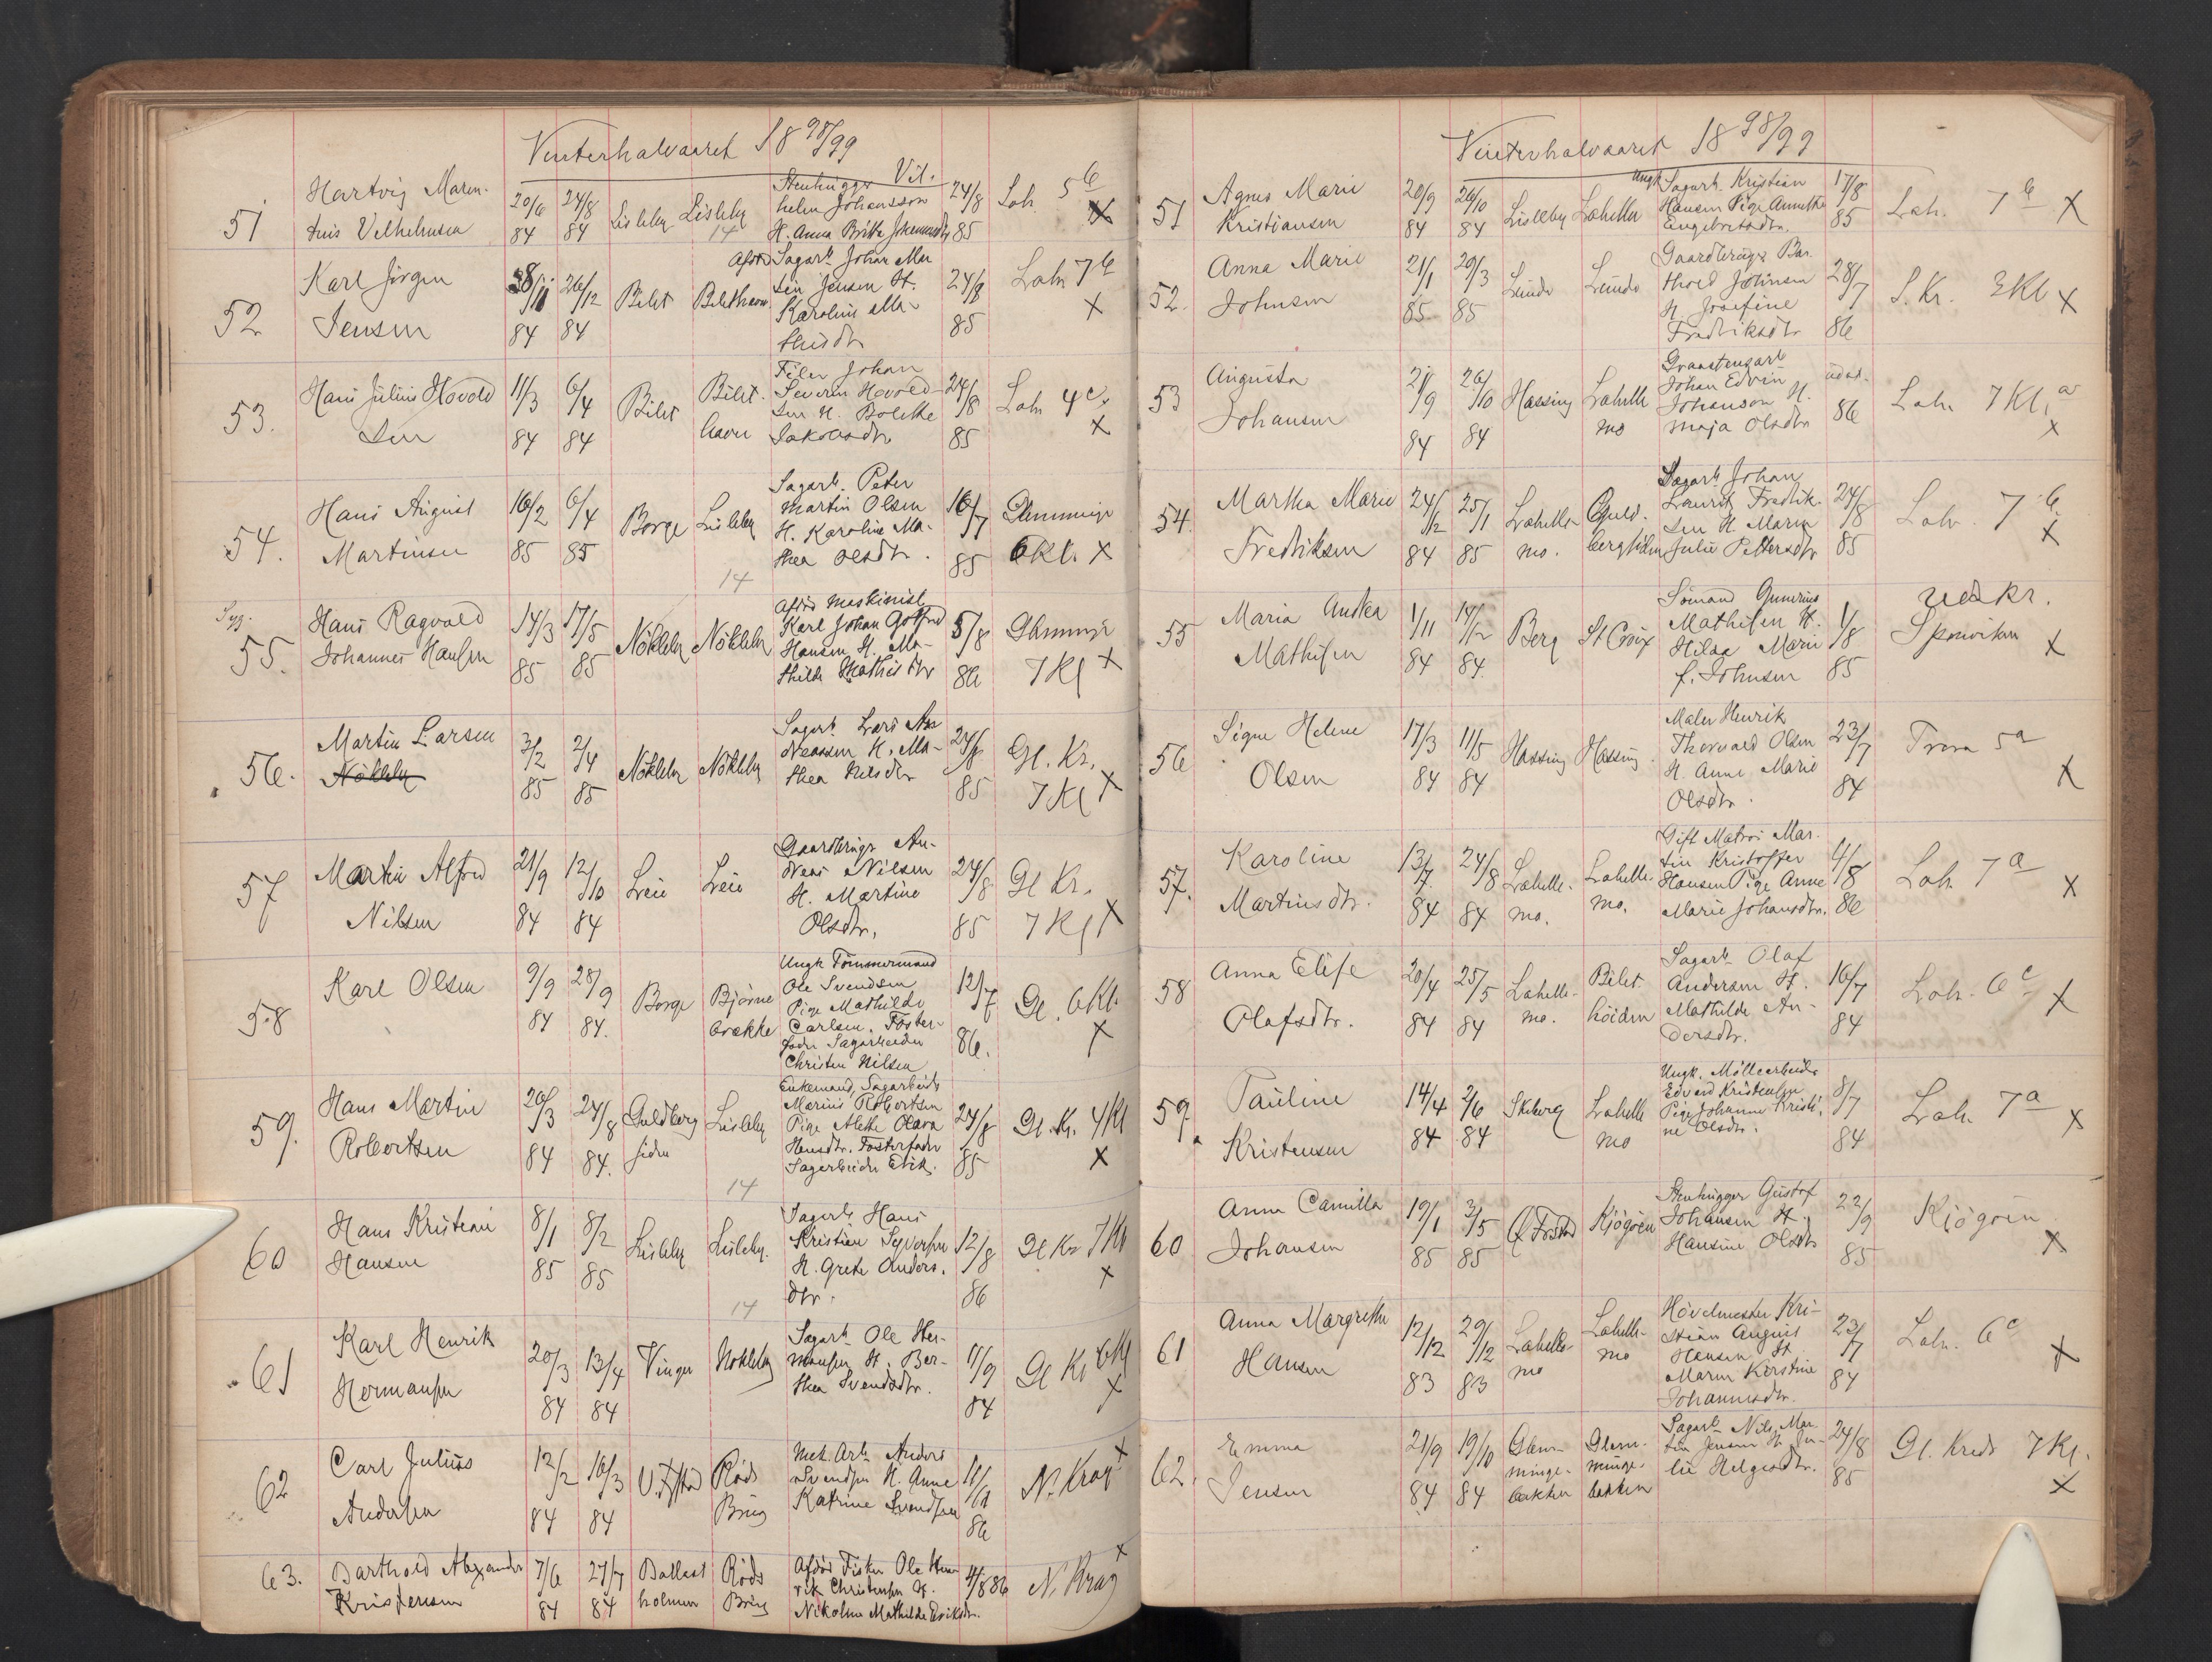 Vinterhalvaaret 18 98/99
51
Hartvig Maren-
tius Vilhelmsen
20/6 84
24/8 84
Lisleby
Lisleby
14
Stenhugger Vil-
helm Johansson
H. Anna Britta Johannesdtr
24/8 85
Lah. 5 b
X
52
Karl Jörgen
Jensen
84
26/12 84
Bilet
Bilethavn
Afdöd Sagarb. Johan Mar
tin Jensen H.
Karoline Ma-
thisdtr
24/8 85
Lah 7 b
X
53.
Hans Julius Hovold
sen
11/3 84
6/4 84
Bilet
Bilet-
havn
Filer Johan
Severin Hovold-
sen H. Bolette
Jakobsdtr
24/8 85
Lah 4 c.
X
54.
Hans August
Martinsen
16/2 85
6/4 85
Borge
Lisleby
Sagarb. Peter
Martin Olsen
H. Karoline Ma-
thea Olsdtr.
16/7 85
Glemminge
6 Kl. X
Syg.
55.
Hans Ragvald
Johannes Hansen
14/3 85
17/5 85
14
Nökleby
Nökleby
Afdöd Maskinist
Karl Johan Gotfred
Hansen H. Ma-
thilde Mathisdtr
5/8 86
Glemminge
7 Kl X
56.
Martin Larsen
Nökleby
3/2 85
2/4 85
Nökleby
Nökleby
Sagarb. Lars An
dreassen H. Ma-
thea Nilsdtr
24/8 85
Gl. Kr.
7 Kl X
57
Martin Alfred
Nilsen
21/9 84
12/10 84
Leie
Leie
Gaardbruger An-
dreas Nilsen
H. Martine
Olsdtr.
24/8 85
Gl Kr.
7 Kl X
58
Karl Olsen
9/9 84
28/9 84.
Borge
Bjørne
brække
Ungk Tömmermand
Ole Svendsen
Pige Mathilde
Carlsen. Foster-
fader Sagarbeider
Christen Nilsen
12/7 86.
Gl. 6 Kl.
X
59.
Hans Martin
Robertsen
20/3 84
24/8 84.
Guldberg
siden
Lisleby
Enkemand, Sagarbeider
Marius Robertsen
Pige Alette Olava
Hansdtr. Fosterfader
Sagarbeider Erik.
24/8 85
Gl. Kr. 4 Kl
X
60
Hans Kristian
Hansen
8/1 85
8/2 85
14
Lisleby
Lisleby.
Sagarb. Hans
Kristian Syversen
H. Grete Anders.
dtr.
12/8 86
Gl Kr 7 Kl
X
61
Karl Henrik
Hermansen
20/3 84
13/4 84
14
Vinger
Nökleby
Sagarb. Ole Her-
mansen H. Ber-
thea Svendsdtr.
11/9 84
Gl Kr 6 Kl
X
62
Carl Julius
Andersen
12/2 84
16/3 84
V. Fr.stad
Röds
Brug
Mek. Arb. Anders
Svendsen H. Anne
Katrine Svendsen
86
N. Krag X
63.
Barthold Alexander
Kristensen
7/6 84
27/7 84
Ballast
holmen
Röds
Brug
Afdöd Fisker Ole Hen
rik Christensen H.
Nikoline Mathilde Eriksdtr.
4/8 86
N. Krag
X
Vinterhalvaaret 18 98/99
51
Agnes Marie
Kristiansen
20/9 84
26/10 84
Lisleby
Lahelle
Ungk Sagarb. Kristian
Hansen Pige Annette
Engebretsdtr.
17/8 85
Lah. 7 b X
52.
Anna Marie
Johnsen
21/1 85
29/3 85
Lunde
Lunde
Gaardbruger Bar
thold Johnsen
H. Josefine
Fredriksdtr
28/7 86
S. Kr. 2 Kl X
53
Augusta
Johansen
21/9 84
26/10 84
Hassing
Lahelle
mo
Graastensarb
Johan Edvin
Johanson H.
Maja Olsdtr
udad.
86
Lah. 7 Kl. a
X
54.
Martha Marie
Fredriksen
24/12 84
25/1 85
Lahelle
mo.
Guld-
bergsiden
Sagarb Johan
Laurits Fredrik-
sen H. Maren
Julie Pettersdtr
24/8 85
Lah. 7 b.
X
55
Maria Andrea
Mathisen
1/11 84
14/12 84.
Berg
St Croix
Sömand Gunerius
Mathisen H.
Hilda Marie
f. Johnsen
1/8 85
udkr.
Sponviken
X
56
Signe Helene
Olsen
17/3 84
11/5 84
Hassing
Hassing
Maler Henrik
Thorvald Olsen
H. Anne Marie
Olsdtr.
23/7 84
Trara 5 a
X
57.
Karoline
Martinsdtr.
13/7 84
24/8 84
Lahelle-
mo.
Lahelle-
mo.
Gift Matros Mar-
tin Kristoffer
Hansen Pige Anne
Marie Johansdtr.
4/8 86
Lah. 7 a
X
58
Anna Elise
Olafsdtr.
20/4 84
25/5 84
Lahelle-
mo.
Bilet
höiden
Sagarb Olaf
Andersen H.
Mathilde An-
dersdtr.
16/7 84
Lah. 6 c
X
59.
Pauline
Kristensen
14/4 84
2/6 84
Skiberg
Lahelle
mo
Ungk. Möllearbeider
Edvard Kristensen
Pige Johanne Kristi-
ne Olsdtr.
8/7 84
Lah. 7 a
X
60
Anna Camilla
Johansen
19/1 85
3/5 85
Ø Frstad
Kjögöen
Stenhugger Gustaf
Johansen H.
Hansine Olsdtr
22/9 85
Kjögöen
X
61
Anna Margrethe
Hansen
12/12 83
29/12 83
Lahelle
mo
Lahelle-
mo
Hövelmester Kri-
stian August
Hansen H
Maren Kirstine
Johannesdtr.
23/7 84
Lah. 6 c
X
62.
Emma
Jensen
21/9 84
19/10 84
Glem-
minge-
bakken
Glem-
minge-
bakken
Sagarb. Nils Mar-
tin Jensen H. Ju-
lie Helgesdtr.
24/8 85
Gl. Kreds 7 Kl.
X